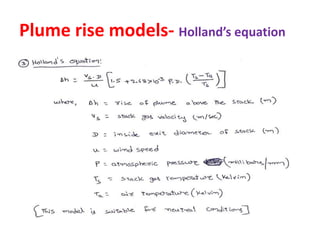 Plume rise models- Holland's equation
③ Holland's equation:
Δh = Vs·D / u [1.5 + 2.68×10⁻³ P.D. (Ts-Ta / Ts)]
where, Δh = rise of plume above the stack (m)
Vs = stack gas velocity (m/sec)
D = inside exit diameter of stack (m)
u = wind speed
P = atmospheric pressure (millibars/
Ts = stack gas temperature (Kelvin)
Ta = air temperature (Kelvin)
[This model is suitable for neutral conditions]